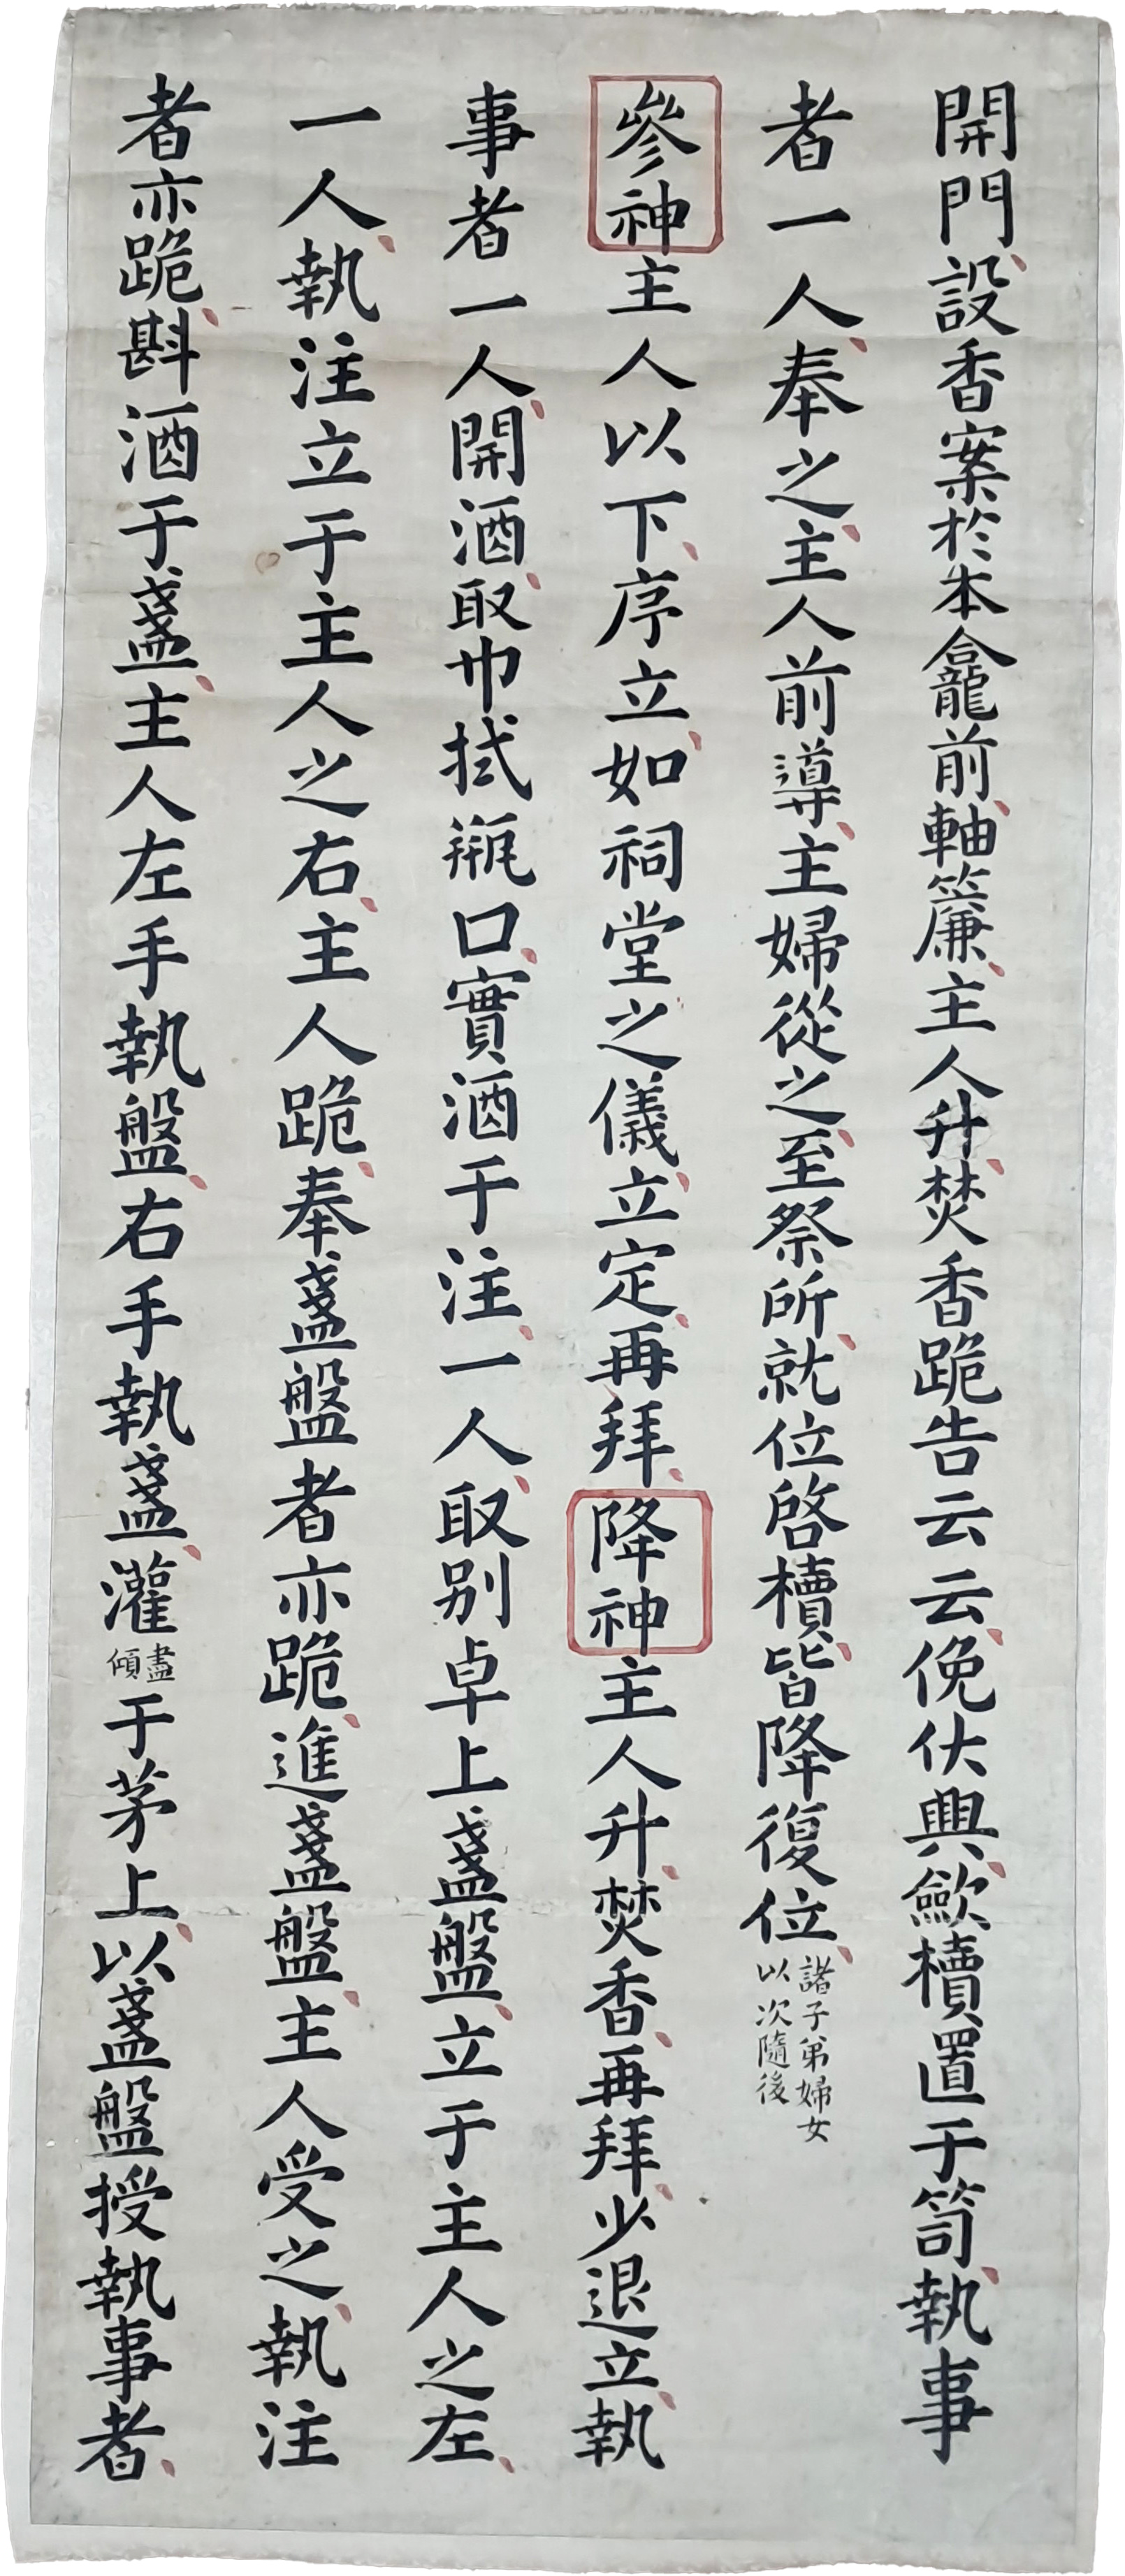 開門設香案於本龕前軸簾主人升焚香跪告云云俛伏興歛櫝置于笥執事
者一人奉之主人前導主婦從之至祭所就位啓櫝皆降復位
諸子弟婦女
以次隨後
參神主人以下序立如祠堂之儀立定再拜降神主人升焚香再拜少退立執
事者一人開酒取巾拭瓶口實酒于注一人取别卓上盞盤立于主人之左
一人執注立于主人之右主人跪奉盞盤者亦跪進盞盤主人受之執注
者亦跪斟酒于盞主人左手執盤右手執盞灌
盡
傾
于茅上以盞盤授執事者